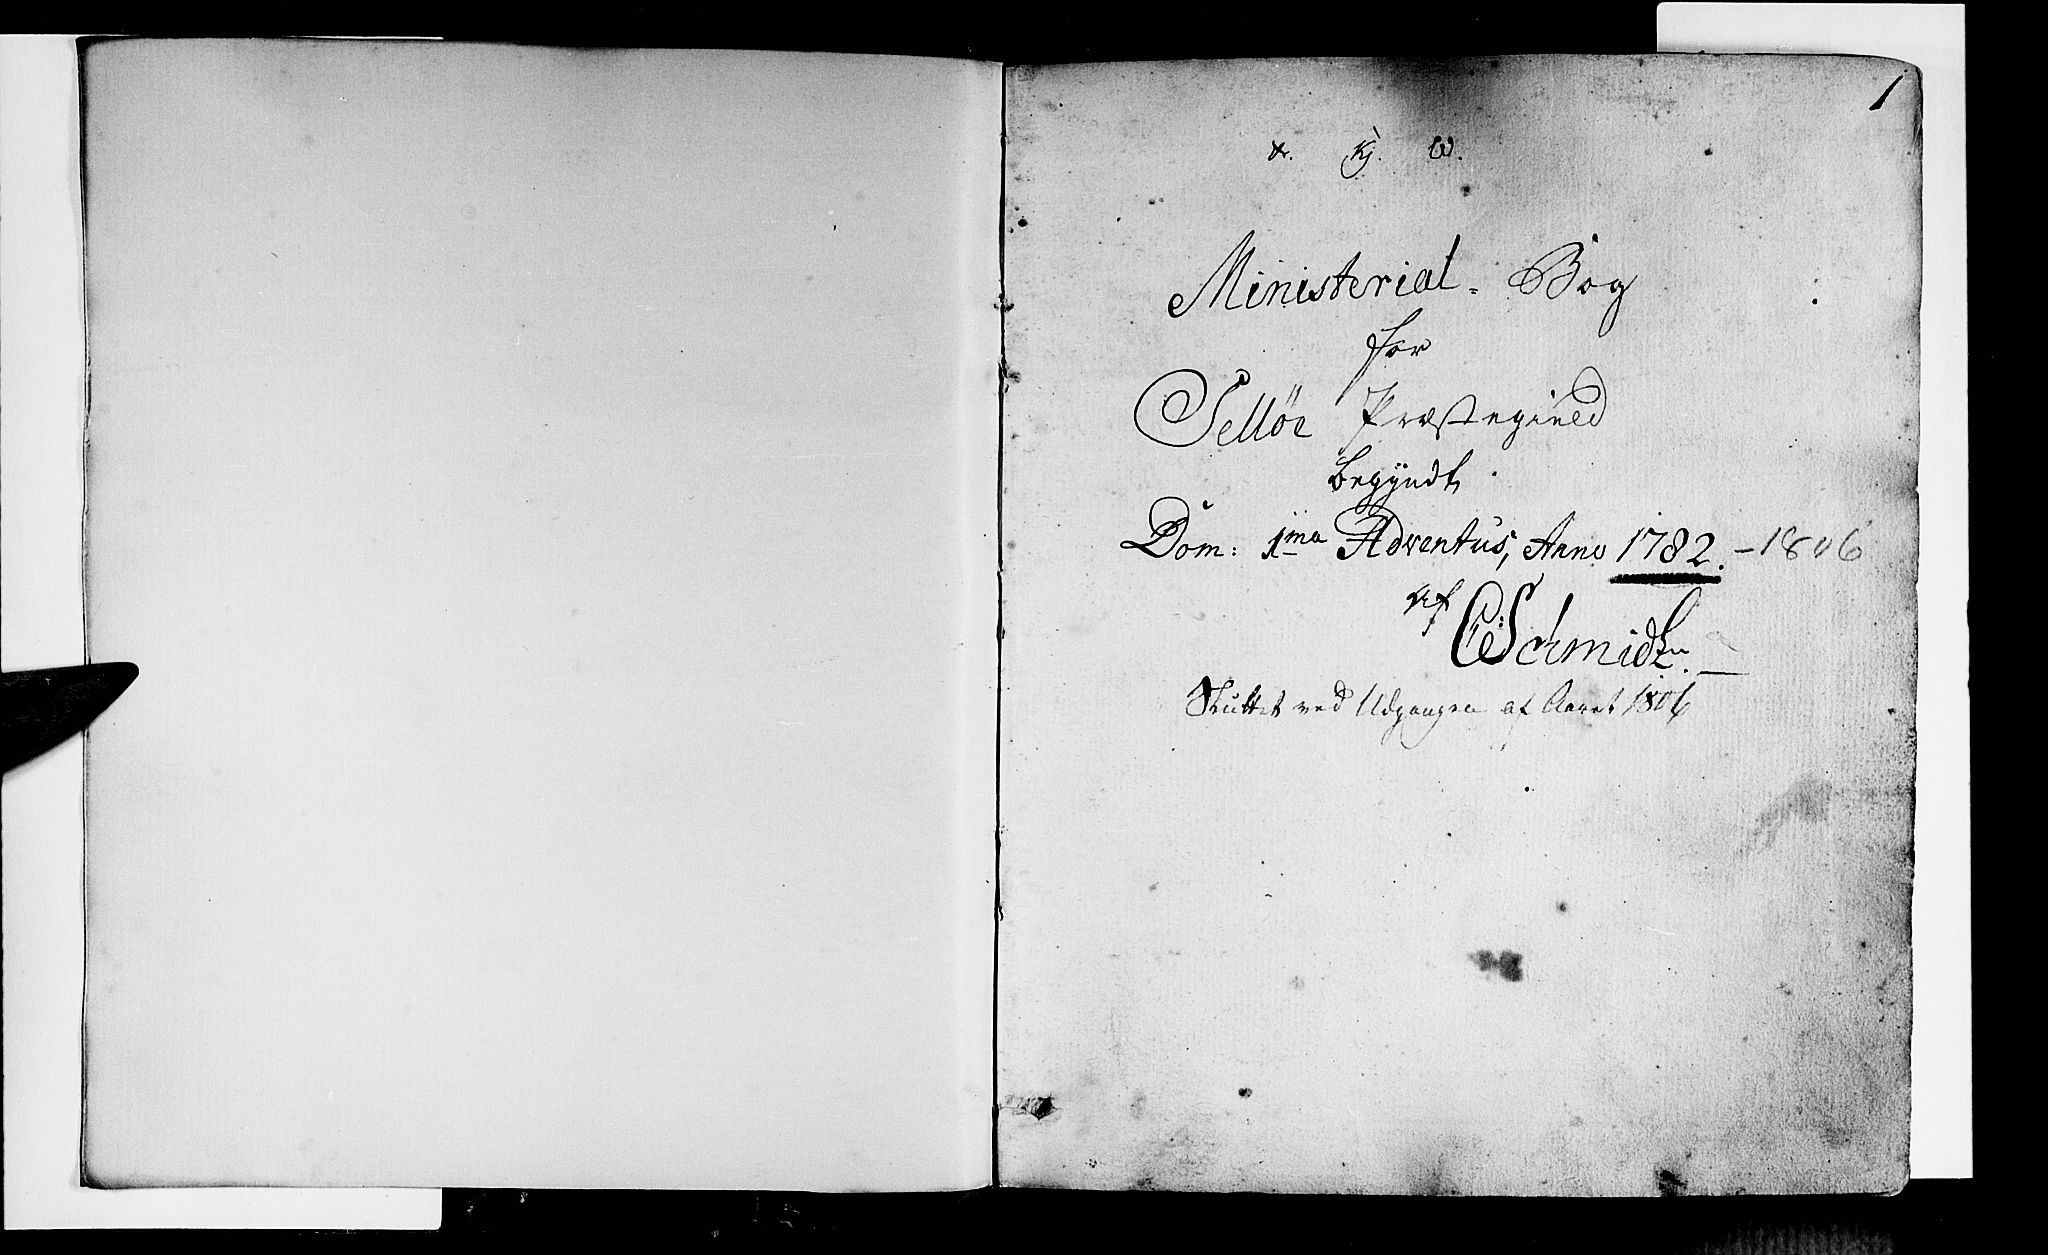 1
Kj. W.
Ministerial = Bog
for
Selløe Præstegield
begyndt
Dom: 1ma Adventus, Anno 1782. - 1806
af
Schmidt
Sluttet ved Udgangen af Aaret 1806